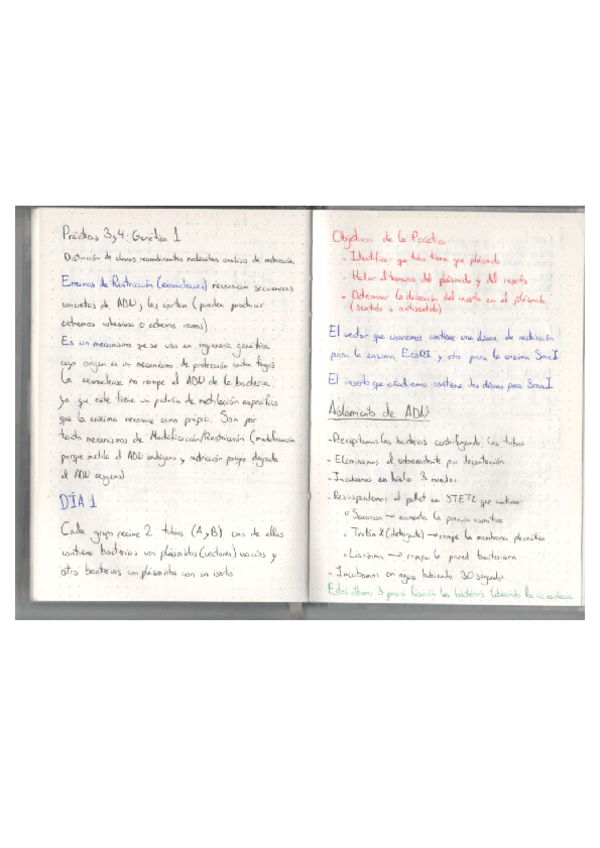 Prácticas 3 y 4: Genética 1
Distinción de clones recombinantes mediantes analisis de restricción
Enzimas de Restricción (exonucleasas) reconocen secuencias
concretas de ADN y las cortan (pueden producir
extremos cohesivos o extremos romos)
Es un mecanismo que se usa en ingeniería genética
cuyo origen es un mecanismo de protección contra fagos
La exonucleasa no rompe el ADN de la bacteria.
ya que este tiene un patrón de metilación específico
que la enzima reconoce como propio. Son por
tanto mecanismos de Modificación/Restricción (modificación
porque metila el ADN endógeno y restricción porque degrada
el ADN exógeno)
DÍA 1
Cada grupo recibe 2 tubos (A y B) uno de ellos
contiene bacterias con plásmidos (vectores) vacíos y
otro bacterias con plásmidos con un inserto
Objetivos de la Práctica
- Identificar que tubo tiene que plásmido
- Hallar el tamaño del plásmido y del inserto
- Determinar la dirección del inserto en el plásmido
(sentido o antisentido)
El vector que usaremos contiene una diana de restricción
para la enzima EcoRI y otra para la enzima SmaI
El inserto que añadiremos contiene dos dianas para SmaI
Aislamiento de ADN
- Precipitamos las bacterias centrifugando los tubos
- Eliminamos el sobrenadante por decantación
- Incubamos en hielo 3 minutos
- Resuspendemos el pellet en STETL que contiene:
o Sacarosa → aumenta la presión osmótica
o Tritón X (detergente) → rompe la membrana plasmática
o Lisozima → rompe la pared bacteriana
- Incubamos en agua hirviendo 30 segundos
Estos últimos 3 pasos lisarán las bacterias liberando